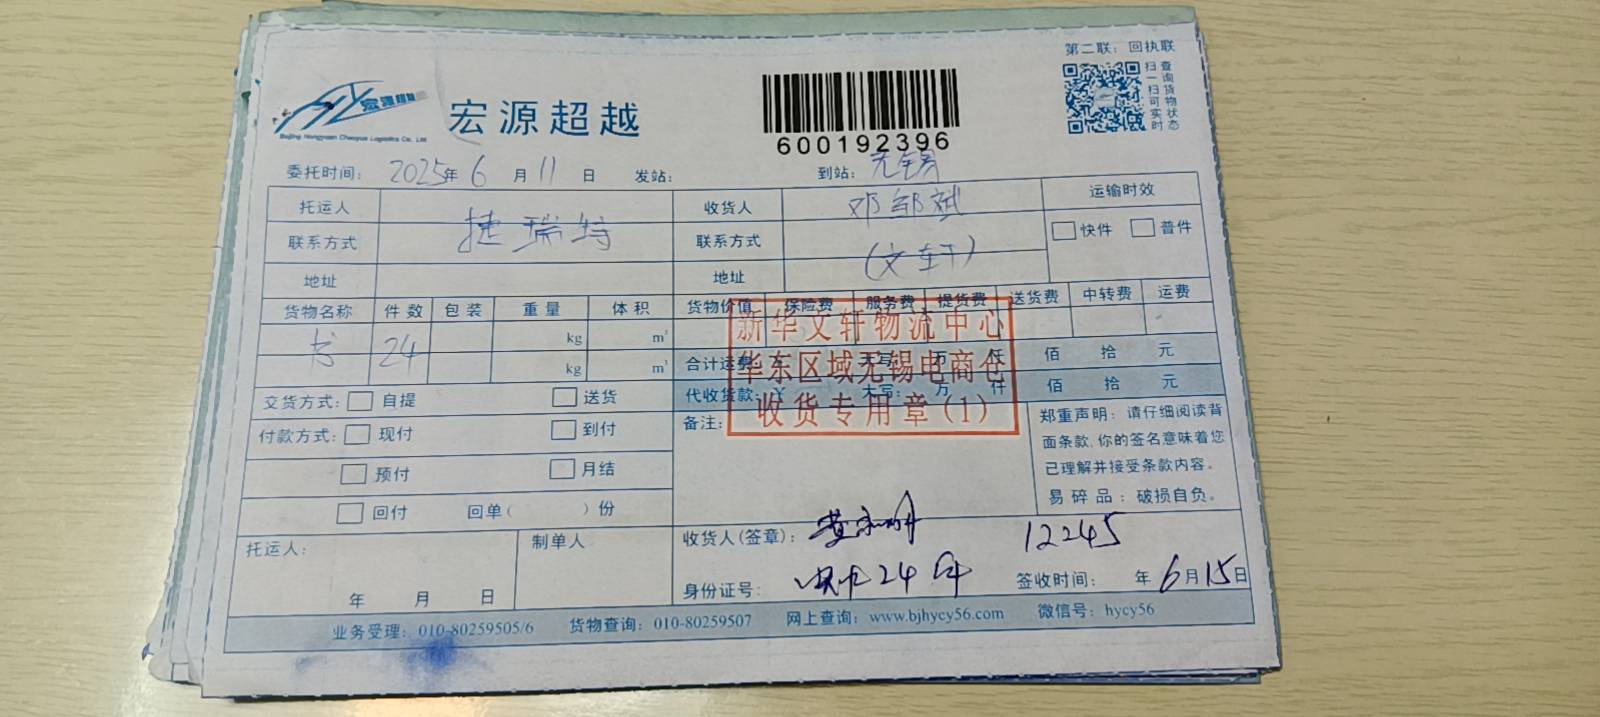 第二联：回执联
宏源超越
Beijing Hongyuan Chaoyue Logistics Co., Ltd
宏源超越
600192396
扫一扫可实时
查询货物状态
委托时间： 2025年 6 月 11 日 发站： 到站： 无锡
托运人 捷瑞特 收货人 邓邹斌 运输时效
联系方式 联系方式 (文轩) 快件 普件
地址 地址
货物名称 件数 包装 重量 体积 货物价值 保险费 服务费 提货费 送货费 中转费 运费
书 24 kg m³
kg m³ 合计运费： 大写： 万 仟 佰 拾 元
代收货款：¥ 大写： 万 仟 佰 拾 元
新华文轩物流中心
华东区域无锡电商仓
收货专用章(1)
交货方式： 自提 送货
付款方式： 现付 到付
预付 月结
回付 回单( )份
备注：
郑重声明：请仔细阅读背
面条款,你的签名意味着您
已理解并接受条款内容。
易碎品：破损自负。
托运人： 年 月 日
制单人
收货人(签章)： 12245
身份证号： 24件 签收时间： 年 6月15日
业务受理：010-80259505/6 货物查询：010-80259507 网上查询：www.bjhycy56.com 微信号：hycy56